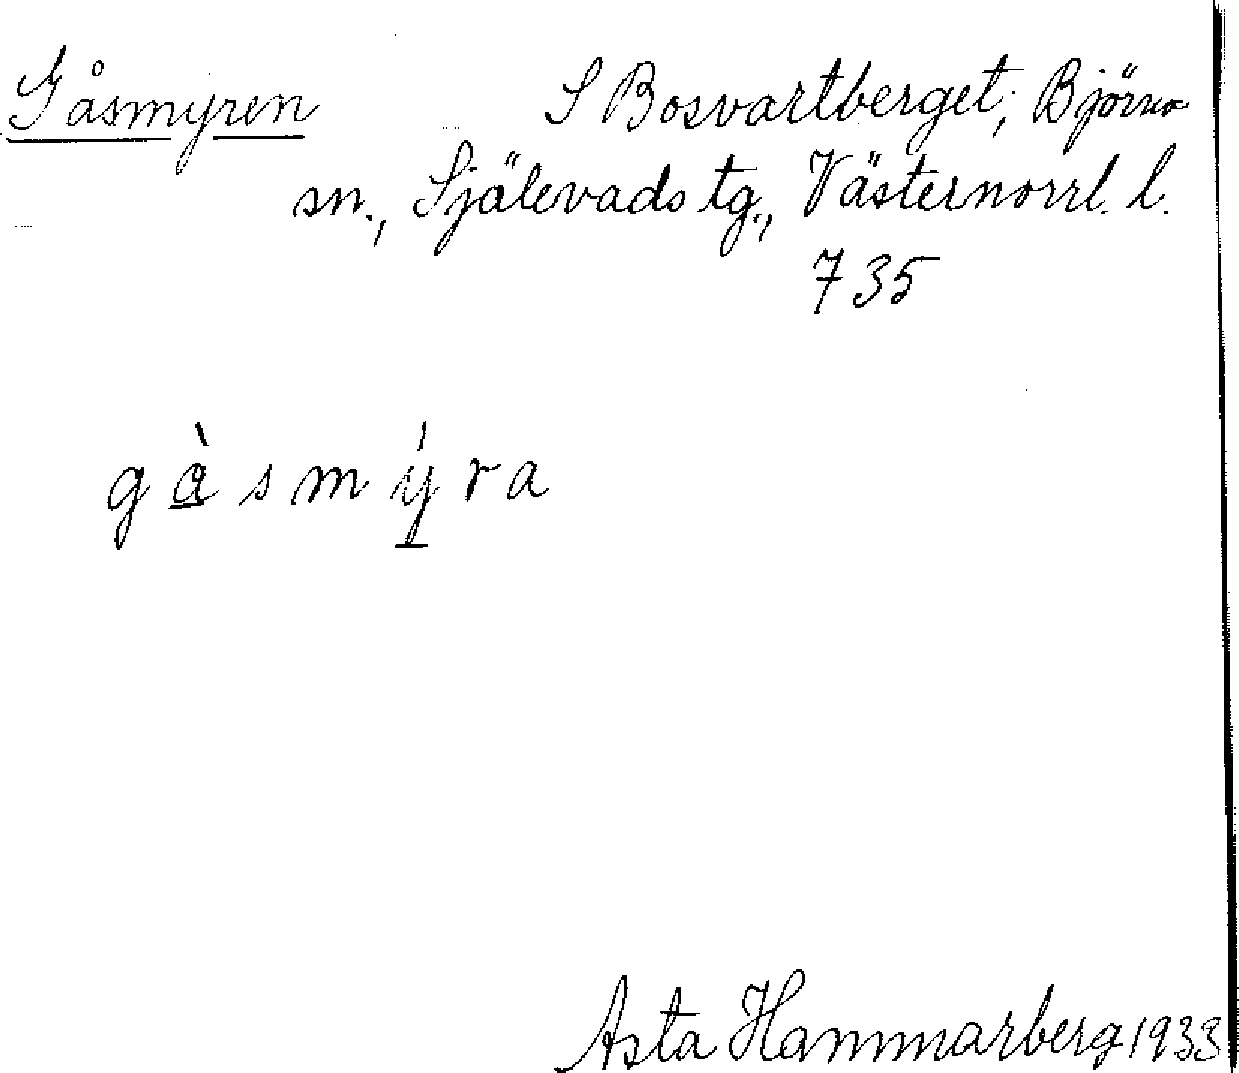 Gåsmyren S Bosvartberget, Björna
sn., Själevads tg., Västernorrl. l.
735
gàsmýra
Asta Hammarberg 1933